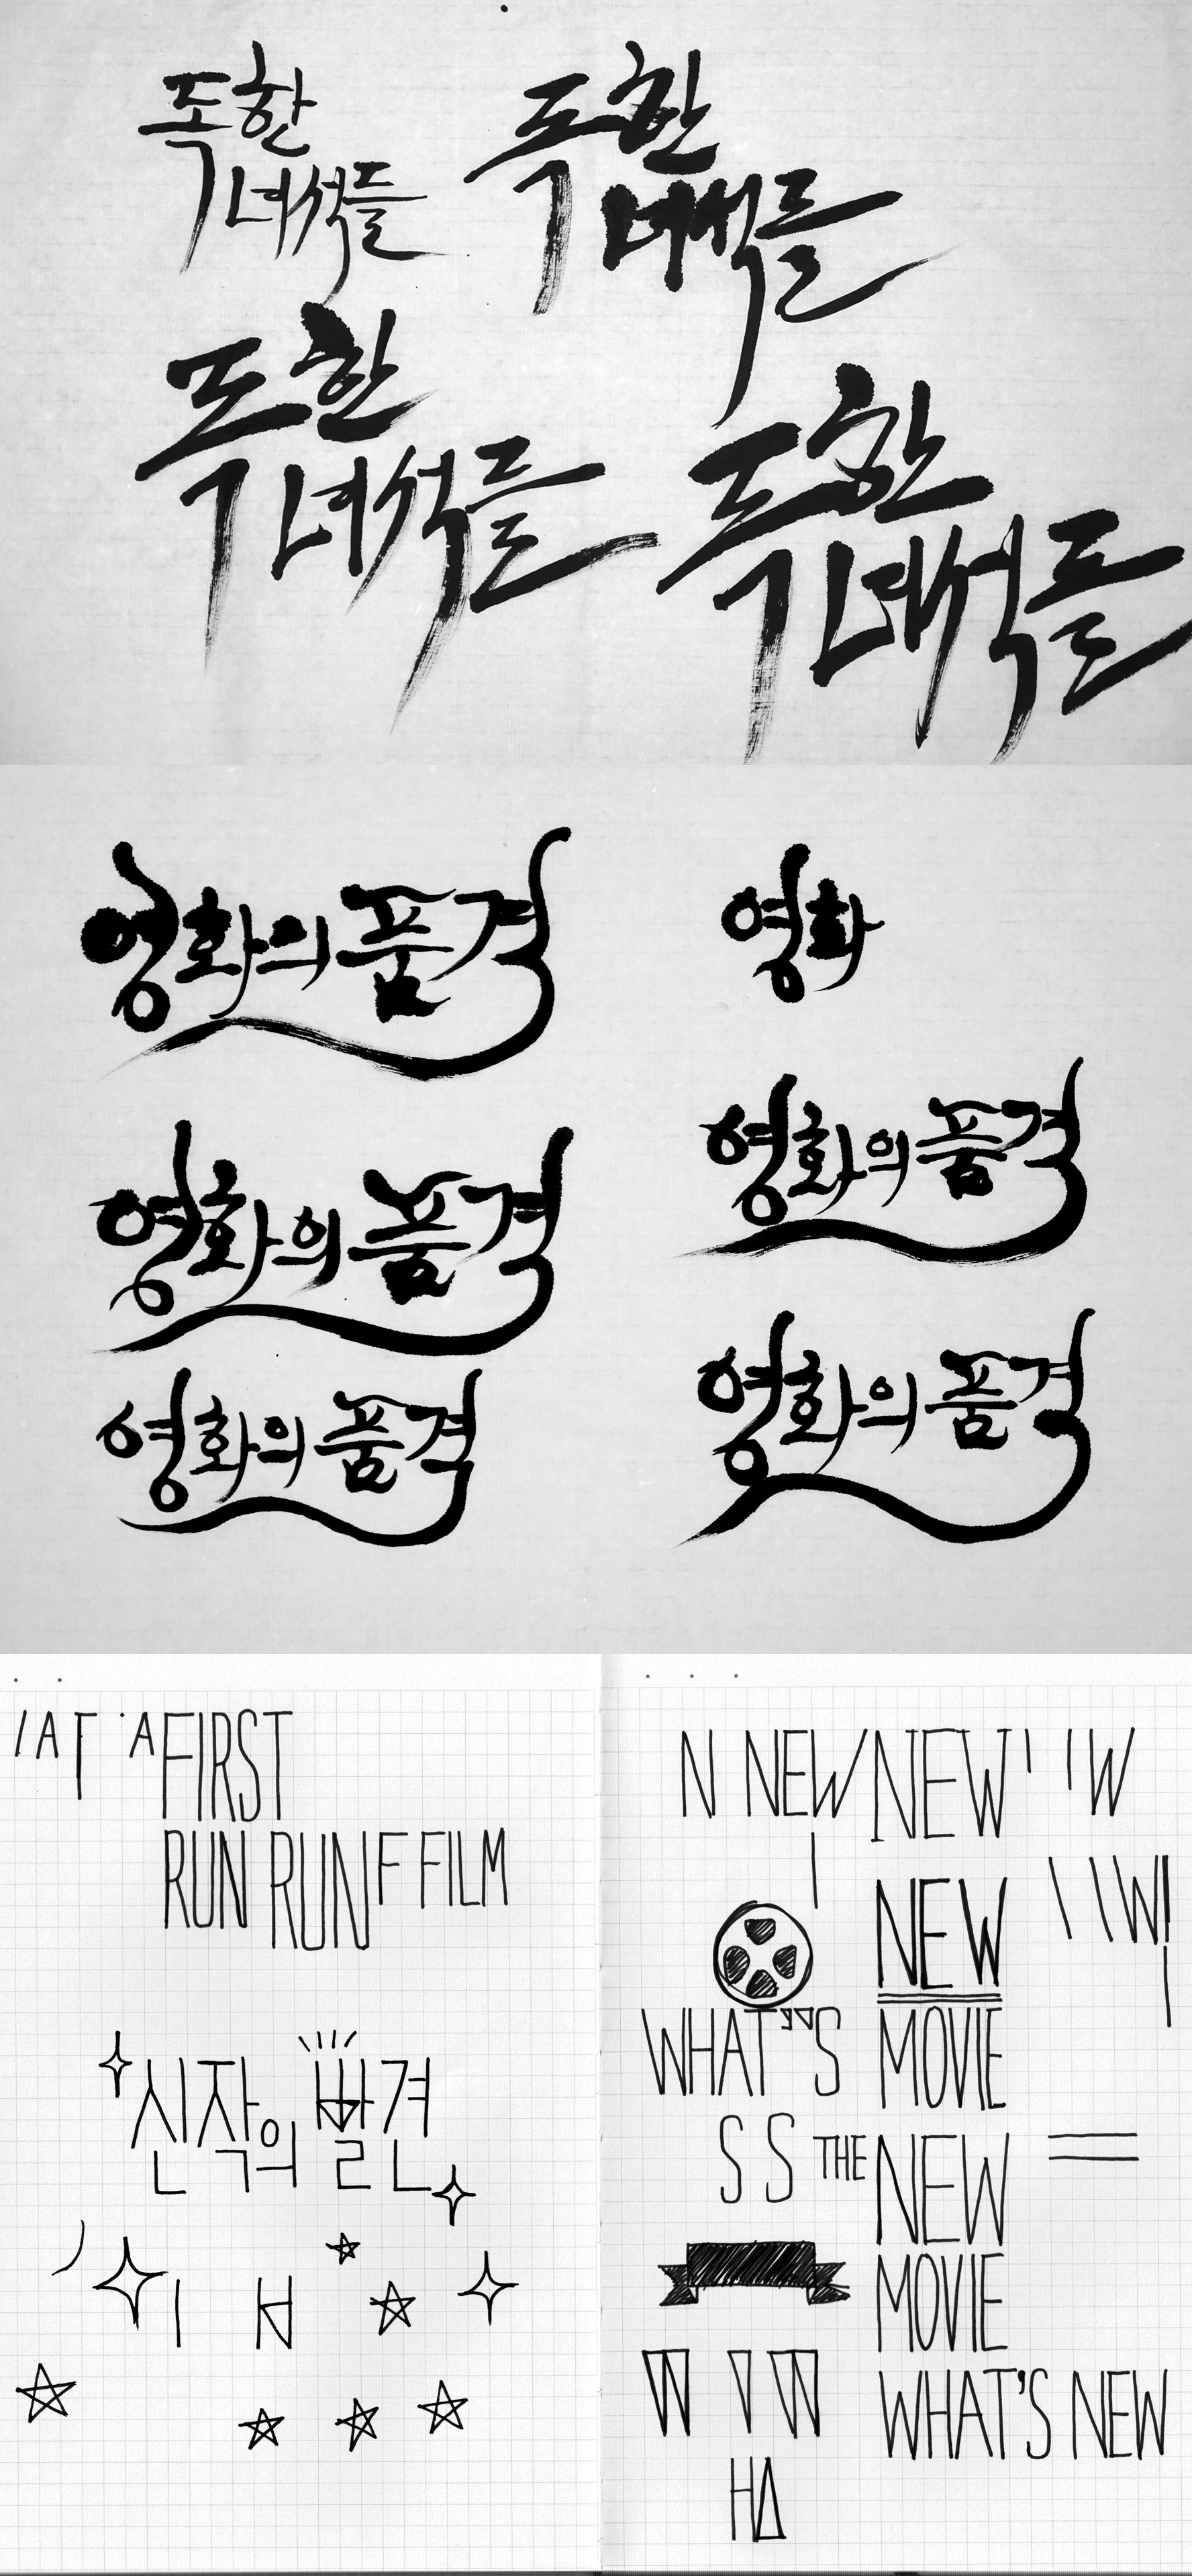 독한
녀석들
독한
녀석들
독한
녀석들
독한
녀석들
영화의 품격
영화
영화의 품격
영화의 품격
영화의 품격
영화의 품격
A T A FIRST
RUN RUN F FILM
신작의 발견
N NEW NEW W
NEW W!
WHAT'S MOVIE
S S THE NEW
MOVIE
W V W
WHAT'S NEW
HA